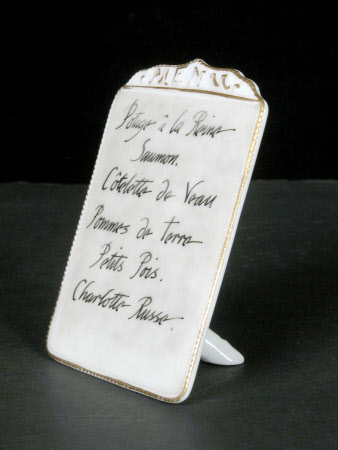 MENU
Potage à la Reine
Saumon.
Côtelette de Veau
Pommes de terre
Petits Pois.
Charlotte Russe.